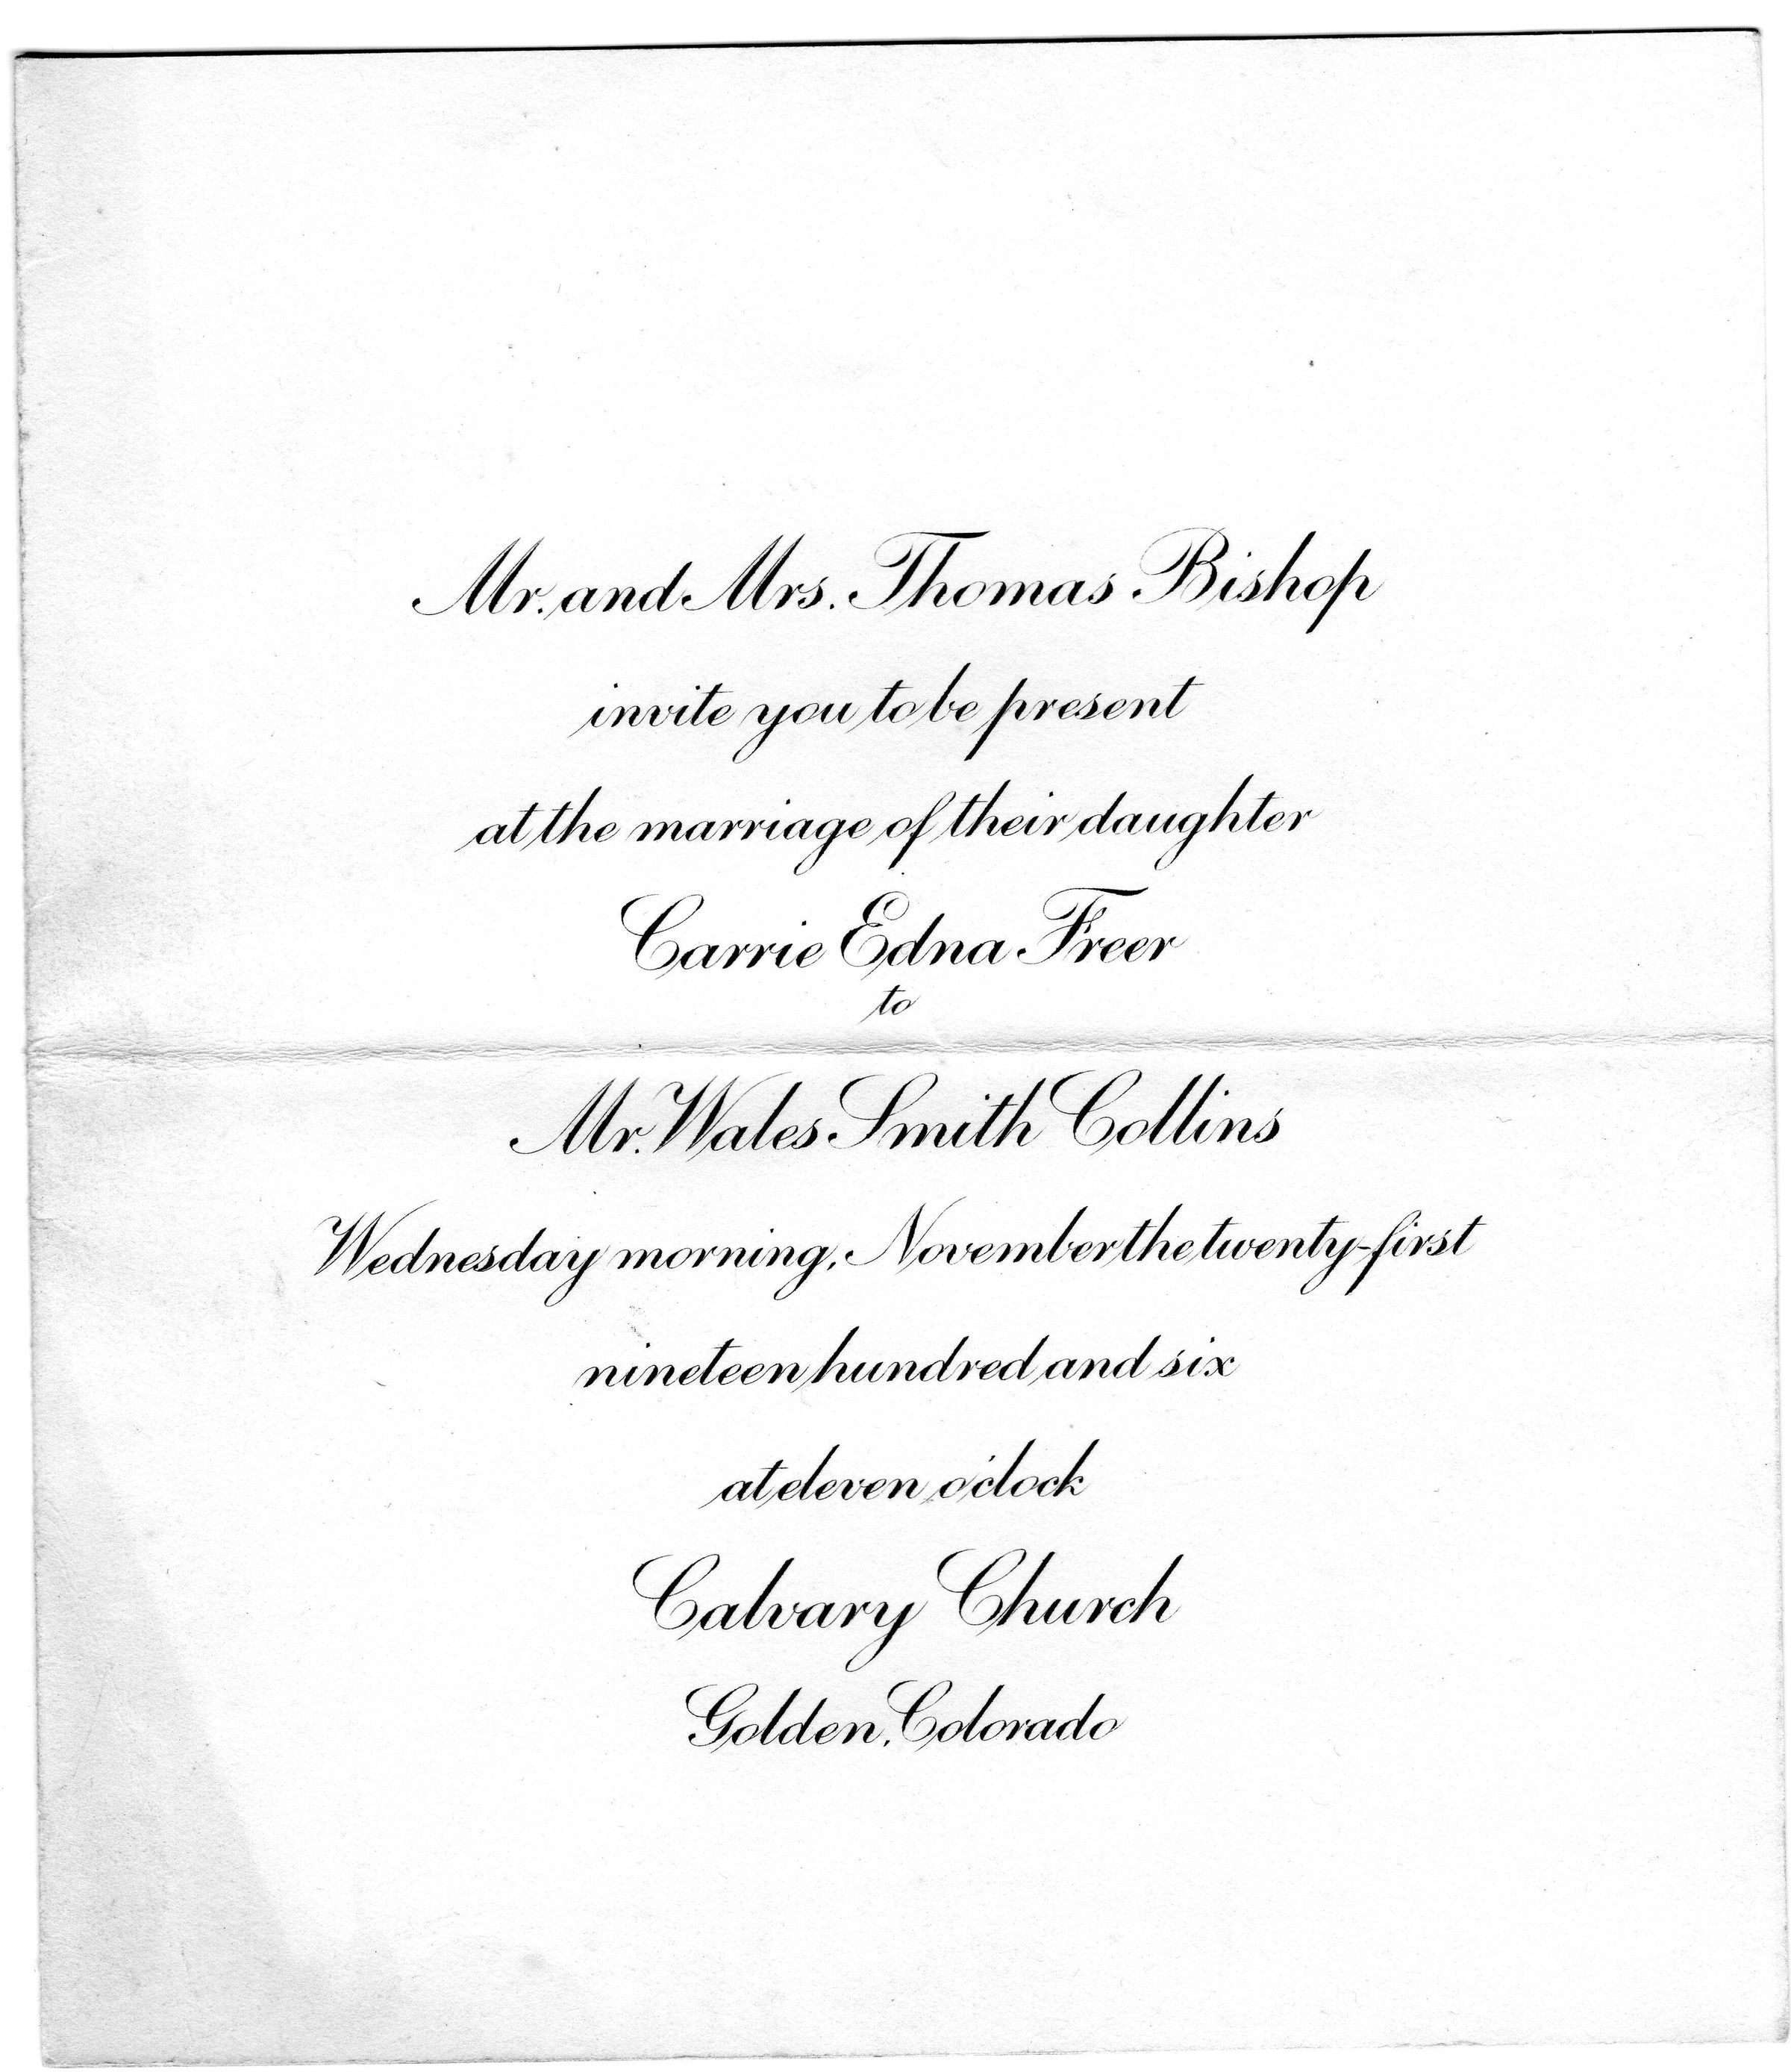 Mr. and Mrs. Thomas Bishop
invite you to be present
at the marriage of their daughter
Carrie Edna Freer
to
Mr. Wales Smith Collins
Wednesday morning, November the twenty-first
nineteen hundred and six
at eleven o'clock
Calvary Church
Golden, Colorado